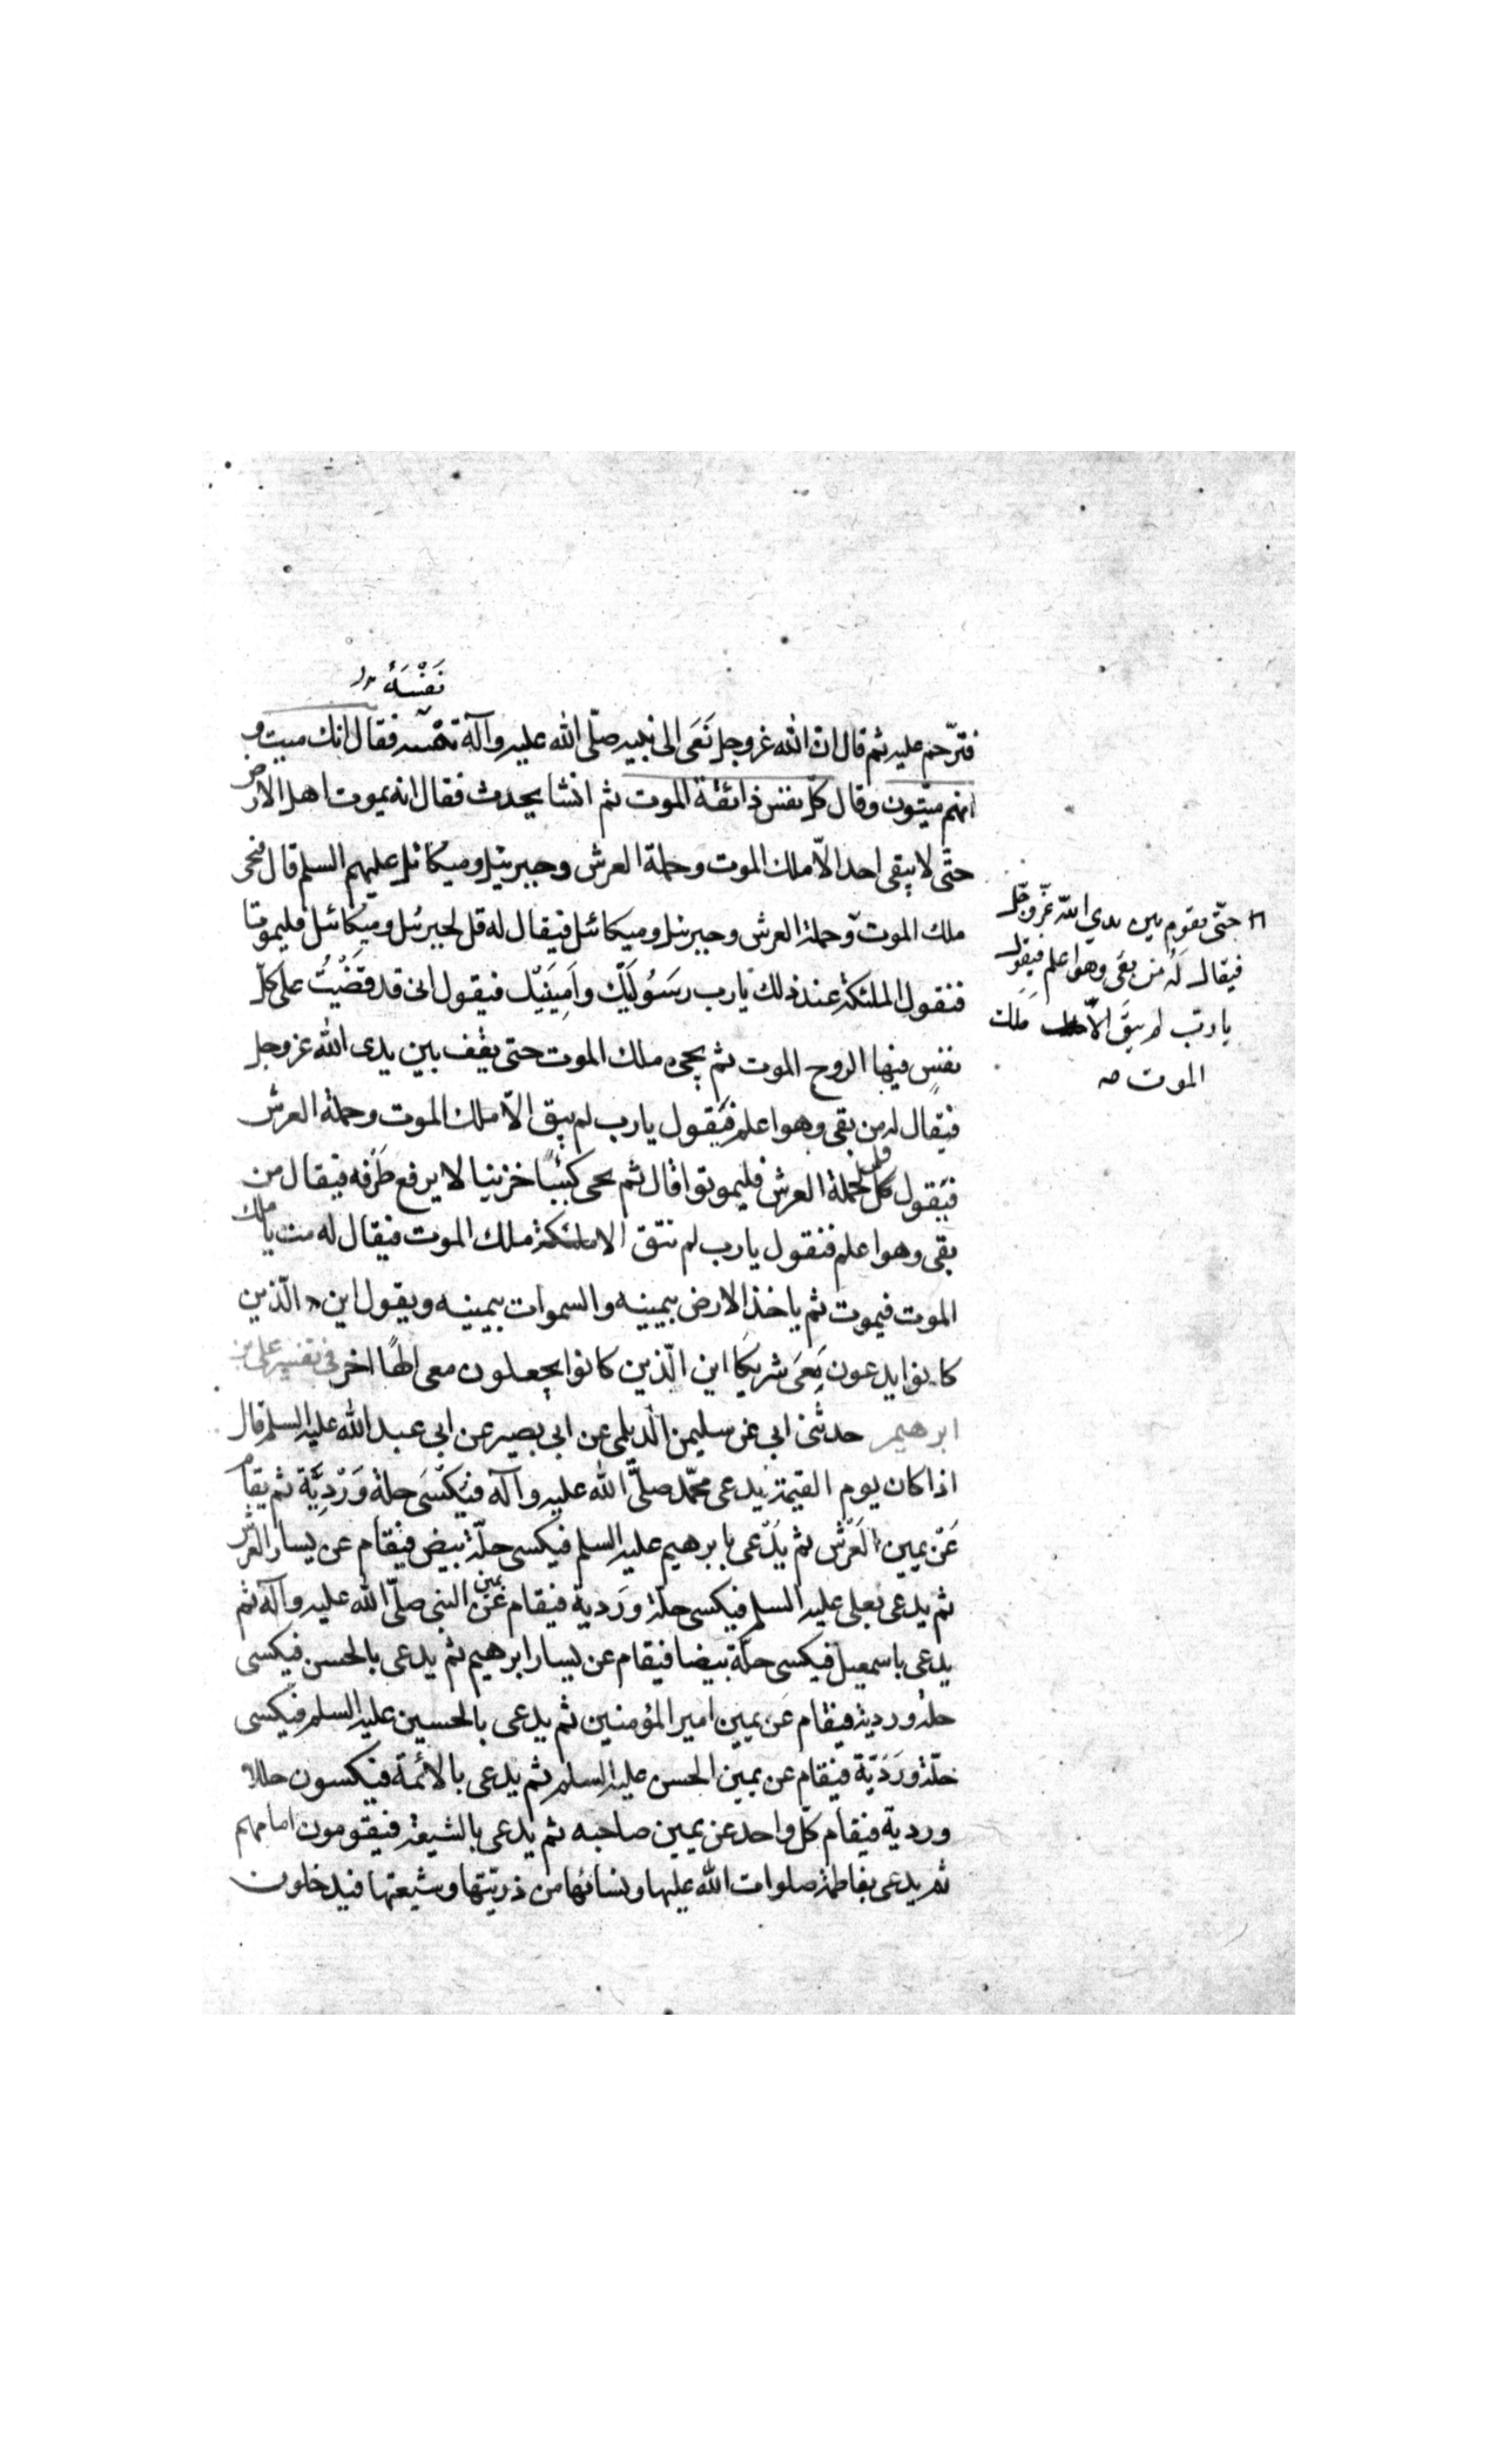 نَفْسَهُ
فترّحم عليه ثم قال ان الله عزوجل نَعَى الى نبيه صلّى الله عليه وآله نفسه فقال انك ميت و
انهم ميّتون وقال كلّ نفس ذائقة الموت ثم انشا يحدث فقال انه يموت اهل الارض
حتّى لا يبقى احد الّا ملك الموت وحملة العرش وجبرئيل وميكائل عليهم السلم قال فيجى
ملك الموت وحملة العرش وجبرئل وميكائل فيقال له قل لجبرئل وميكائل فليموتا
فتقول الملئكة عند ذلك يارب رسَسُولَيْكَ وامِينَيْك فيقول انى قد قَضَيْتُ على كلّ
نفسٍ فيها الروح الموت ثم يجىء ملك الموت حتى يقف بين يدى الله عزوجل
فيقال له من بقى وهو اعلم فيَقول يارب لم يبق الّا ملك الموت وحملة العرش
فيَقول قل لحملة العرش فليموتوا قال ثم يجى كئيباً حزينا لا يرفع طَرفه فيقال من
بقى وهو اعلم فنقول يارب لم يتق الا ملك الموت فيقال له مت يا ملك
الموت فيموت ثم ياخذ الارض بيمينه والسموات بيمينه ويقول اين الّذين
كانوا يدعون مَعَى شريكا اين الّذين كانوا يجعلون معى الهًا اخر فى تفسير على بن
ابرهيم حدثنى ابى عن سليمن الّديلمى عن ابى بصير عن ابى عبد الله عليه السلم قال
اذا كان يوم القيمة يدعى محمّد صلّى الله عليه وآله فيَكْسَى حلة وَرْدِيَّة ثم يقام
عَنْ يمين العَرْش ثم يُدْعى بابرهيم عليه السلم فيكسى حلّة بيض فيقام عن يسار العرش
ثم يدعى بعلى عليه السلم فيكسى حلة وَردية فيقام عَن يمين النبى صلّى الله عليه وآله ثم
يدعى باسمعيل فيكسى حلّة بيضا فيقام عن يسار ابرهيم ثم يدعى بالحسن فيكسى
حلة وردية فيقام عَن يمين امير المؤمنين ثم يدعى بالحسين عليه السلم فيكسى
حلّة وَرَدْيّة فيقام عن يمين الحسن عليه السلم ثم يدعى بالائمة فيكسون حللا
وردية فيقام كلّ واحد عن يمين صاحبه ثم يدعى بالشيعة فيقومون امامهم
ثم يدعى بفاطمة صلوات الله عليها ونسائها من ذريتها وشيعتها فيدخلون
حتّى يقوم بين يدي اللّه عَزّوجلّ
فيقال لَهُ مَن بَقى وهو اعلم فيقول
يا ربّ لم يبقَ الّا مَلك
الموت صه